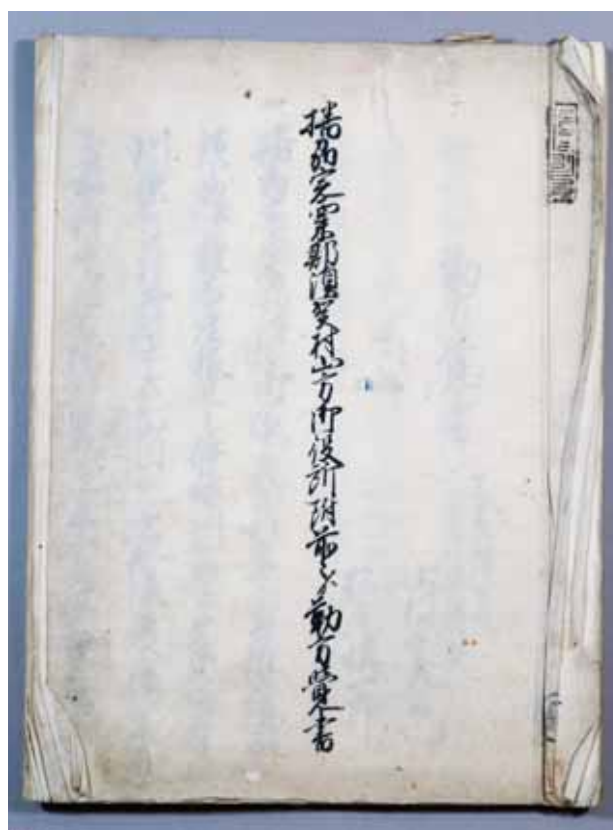 播州宍粟郡須賀村山方御役所附前々ゟ勤方覺書